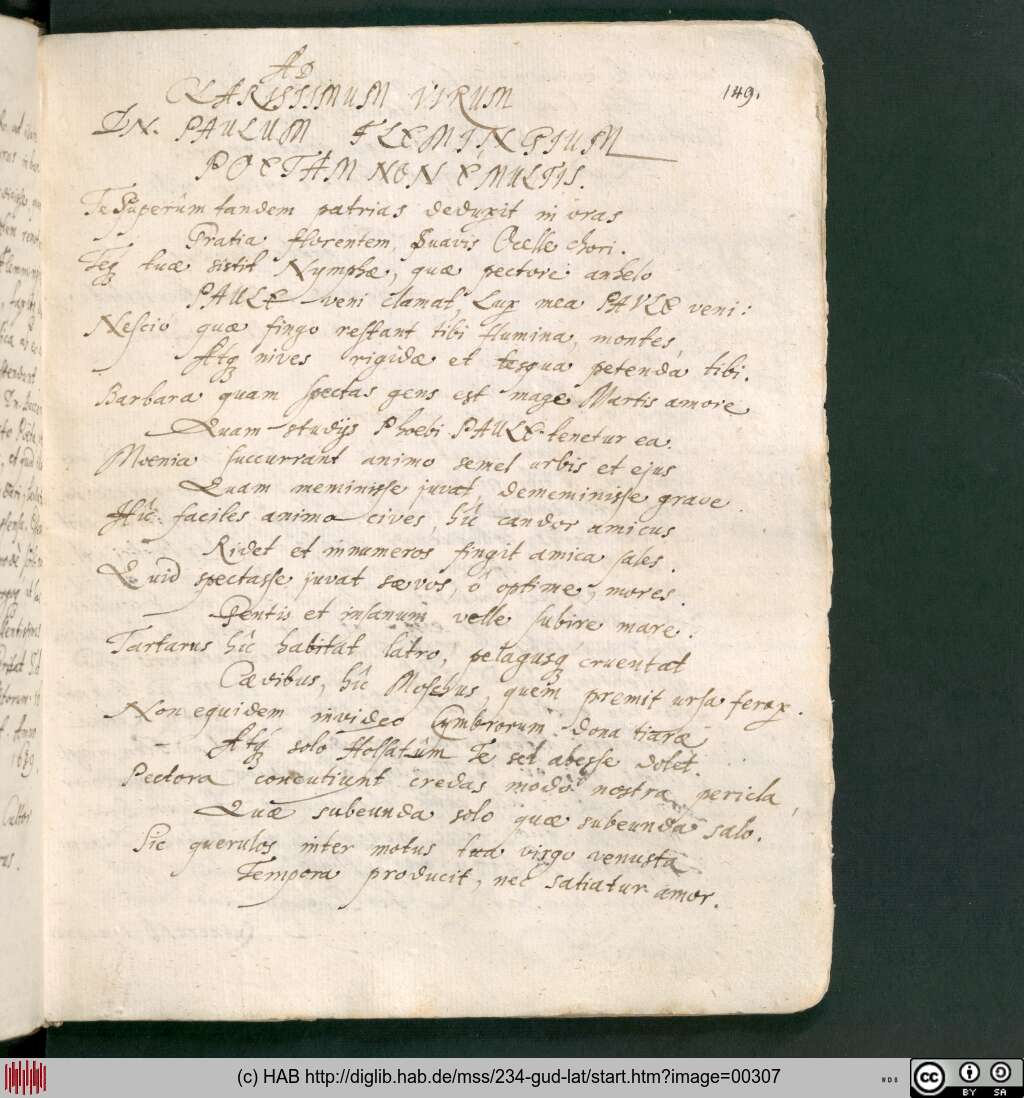 149.
AD
CLARISSIMUM VIRUM
DN. PAULUM FLEMINGIUM
POETAM NON È MULTIS.
Te Superûm tandem patrias deduxit in oras
Gratia florentem, Suavis Ocelle chori.
Teq́ꝫ tuæ sistit Nymphæ, quæ pectore anhelo
PAULE veni clamat, Lux mea PAVLE veni:
Nescio quæ fingo restant tibi flumina, montes
Atq́ꝫ nives rigidæ et tesqua petenda tibi.
Barbara quam spectas gens est mage Martis amore
Quam studijs Phoebi PAULE tenetur ea.
Moenia succurrant animo semel urbis et ejus
Quam meminisse juvat, dememinisse grave.
Hîc faciles animo cives, hîc candor amicus
Ridet et innumeros fingit amica sales.
Quid spectasse juvat sævos, ô optime, mores.
Gentis et insanum velle subire mare.
Tartarus hîc habitat latro, pelagusqꝫ cruentat
Cædibus, hîc Moschus, quem premit ursa ferox.
Non equidem invideo Cymbrorum dona tiaræ
Atq́ꝫ solo Holsatûm Te sed abesse dolet.
Pectora concutiunt credas modò nostra pericla,
Quæ subeunda solo quæ subeunda salo.
Sic querulos inter motus tua virgo venusta
Tempora producit, nec satiatur amor.
1639.
(c) HAB http://diglib.hab.de/mss/234-gud-lat/start.htm?image=00307
WDB
cc
BY SA